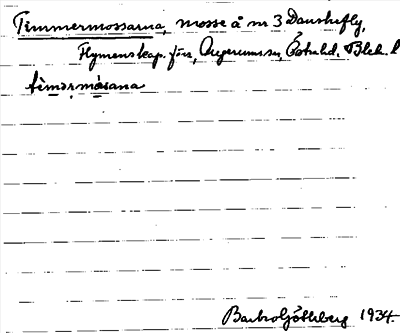 Timmermossarna, mosse å nr 3 Danskefly,
Flymenskap. förs, Augerums sn, Östra hd. Blek. l
tìmərmå̀sana
Barbro Götlberg 1934